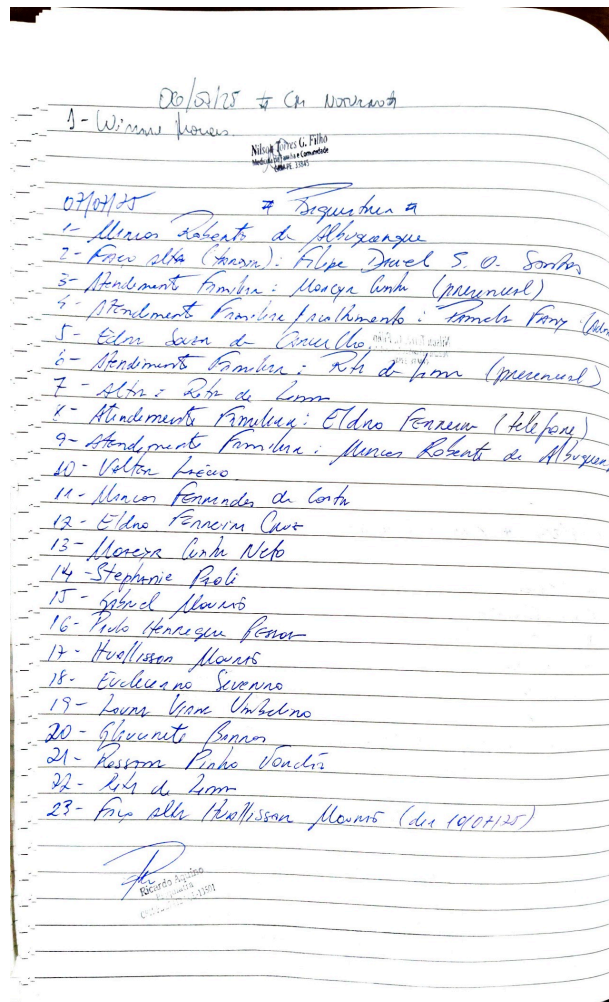 06/07/25 # CM NOTURNO #
1- Winnie Morais
Nilson Torres G. Filho
Medicina de Família e Comunidade
07/07/25 # Psiquiatria #
1- Marcos Roberto de Albuquerque
2- Faço alta (transf): Filipe Daniel S. O. Santos
3- Atendimento Familiar: Moacyr Cunha (presencial)
4- Atendimento Familiar / acolhimento: Pamela Fany
5- Edna Souza de Carvalho
6- Atendimento Familiar: Rita de Lima (presencial)
7- Alta: Rita de Lima
8- Atendimento Familiar: Eldno Ferreira (telefone)
9- Atendimento Familiar: Marcos Roberto de Albuquerq
10- Valter
11- Marcos Fernandes da Costa
12- Eldno Ferreira Cruz
13- Moacyr Cunha Neto
14- Stephanie Paoli
15- Gabriel Mourão
16- Paulo Henrique
17- Huallisson Mourão
18- Severino
19- Umbelino
20- Glaucinete Barros
21- Pinho
22- Rita de Lima
23- Faço alta Huallisson Mourão (dia 10/07/25)
Ricardo Aquino
Psiquiatria